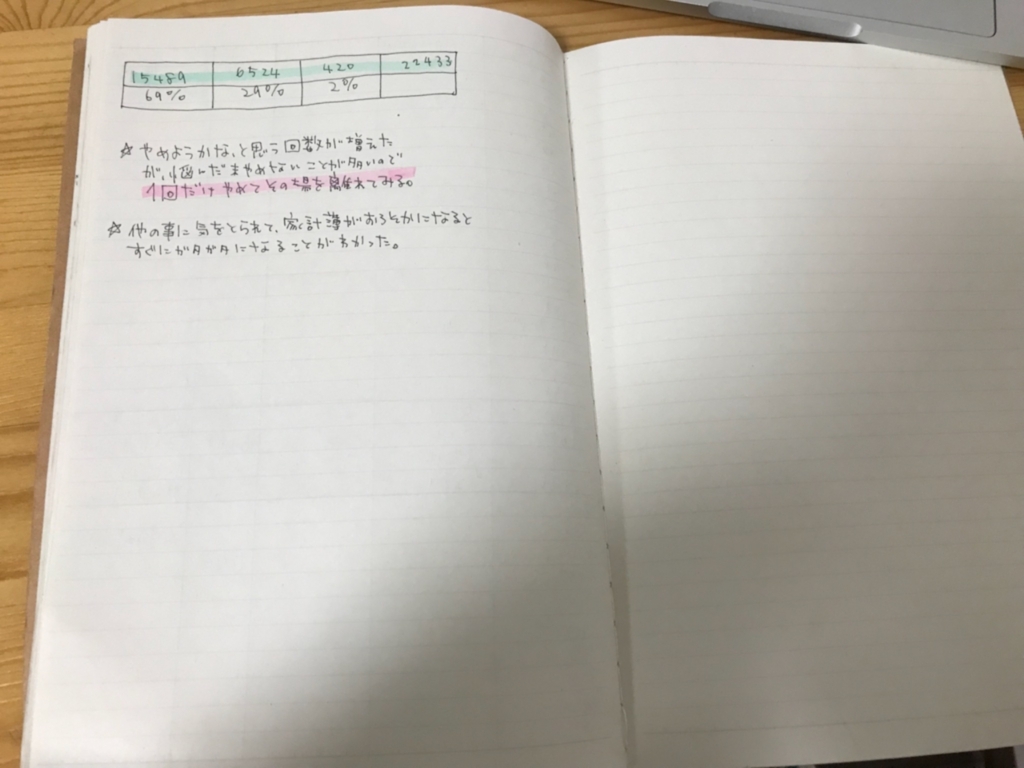 15489 6524 420 22433
69% 29% 2%
☆ やめようかな、と思う回数が増えた
が、悩んだままやめないことが多いので
1回だけやめてその場を離れてみる。
☆ 他の事に気をとられて、家計簿がおろそかになると
すぐにガタガタになることがわかった。